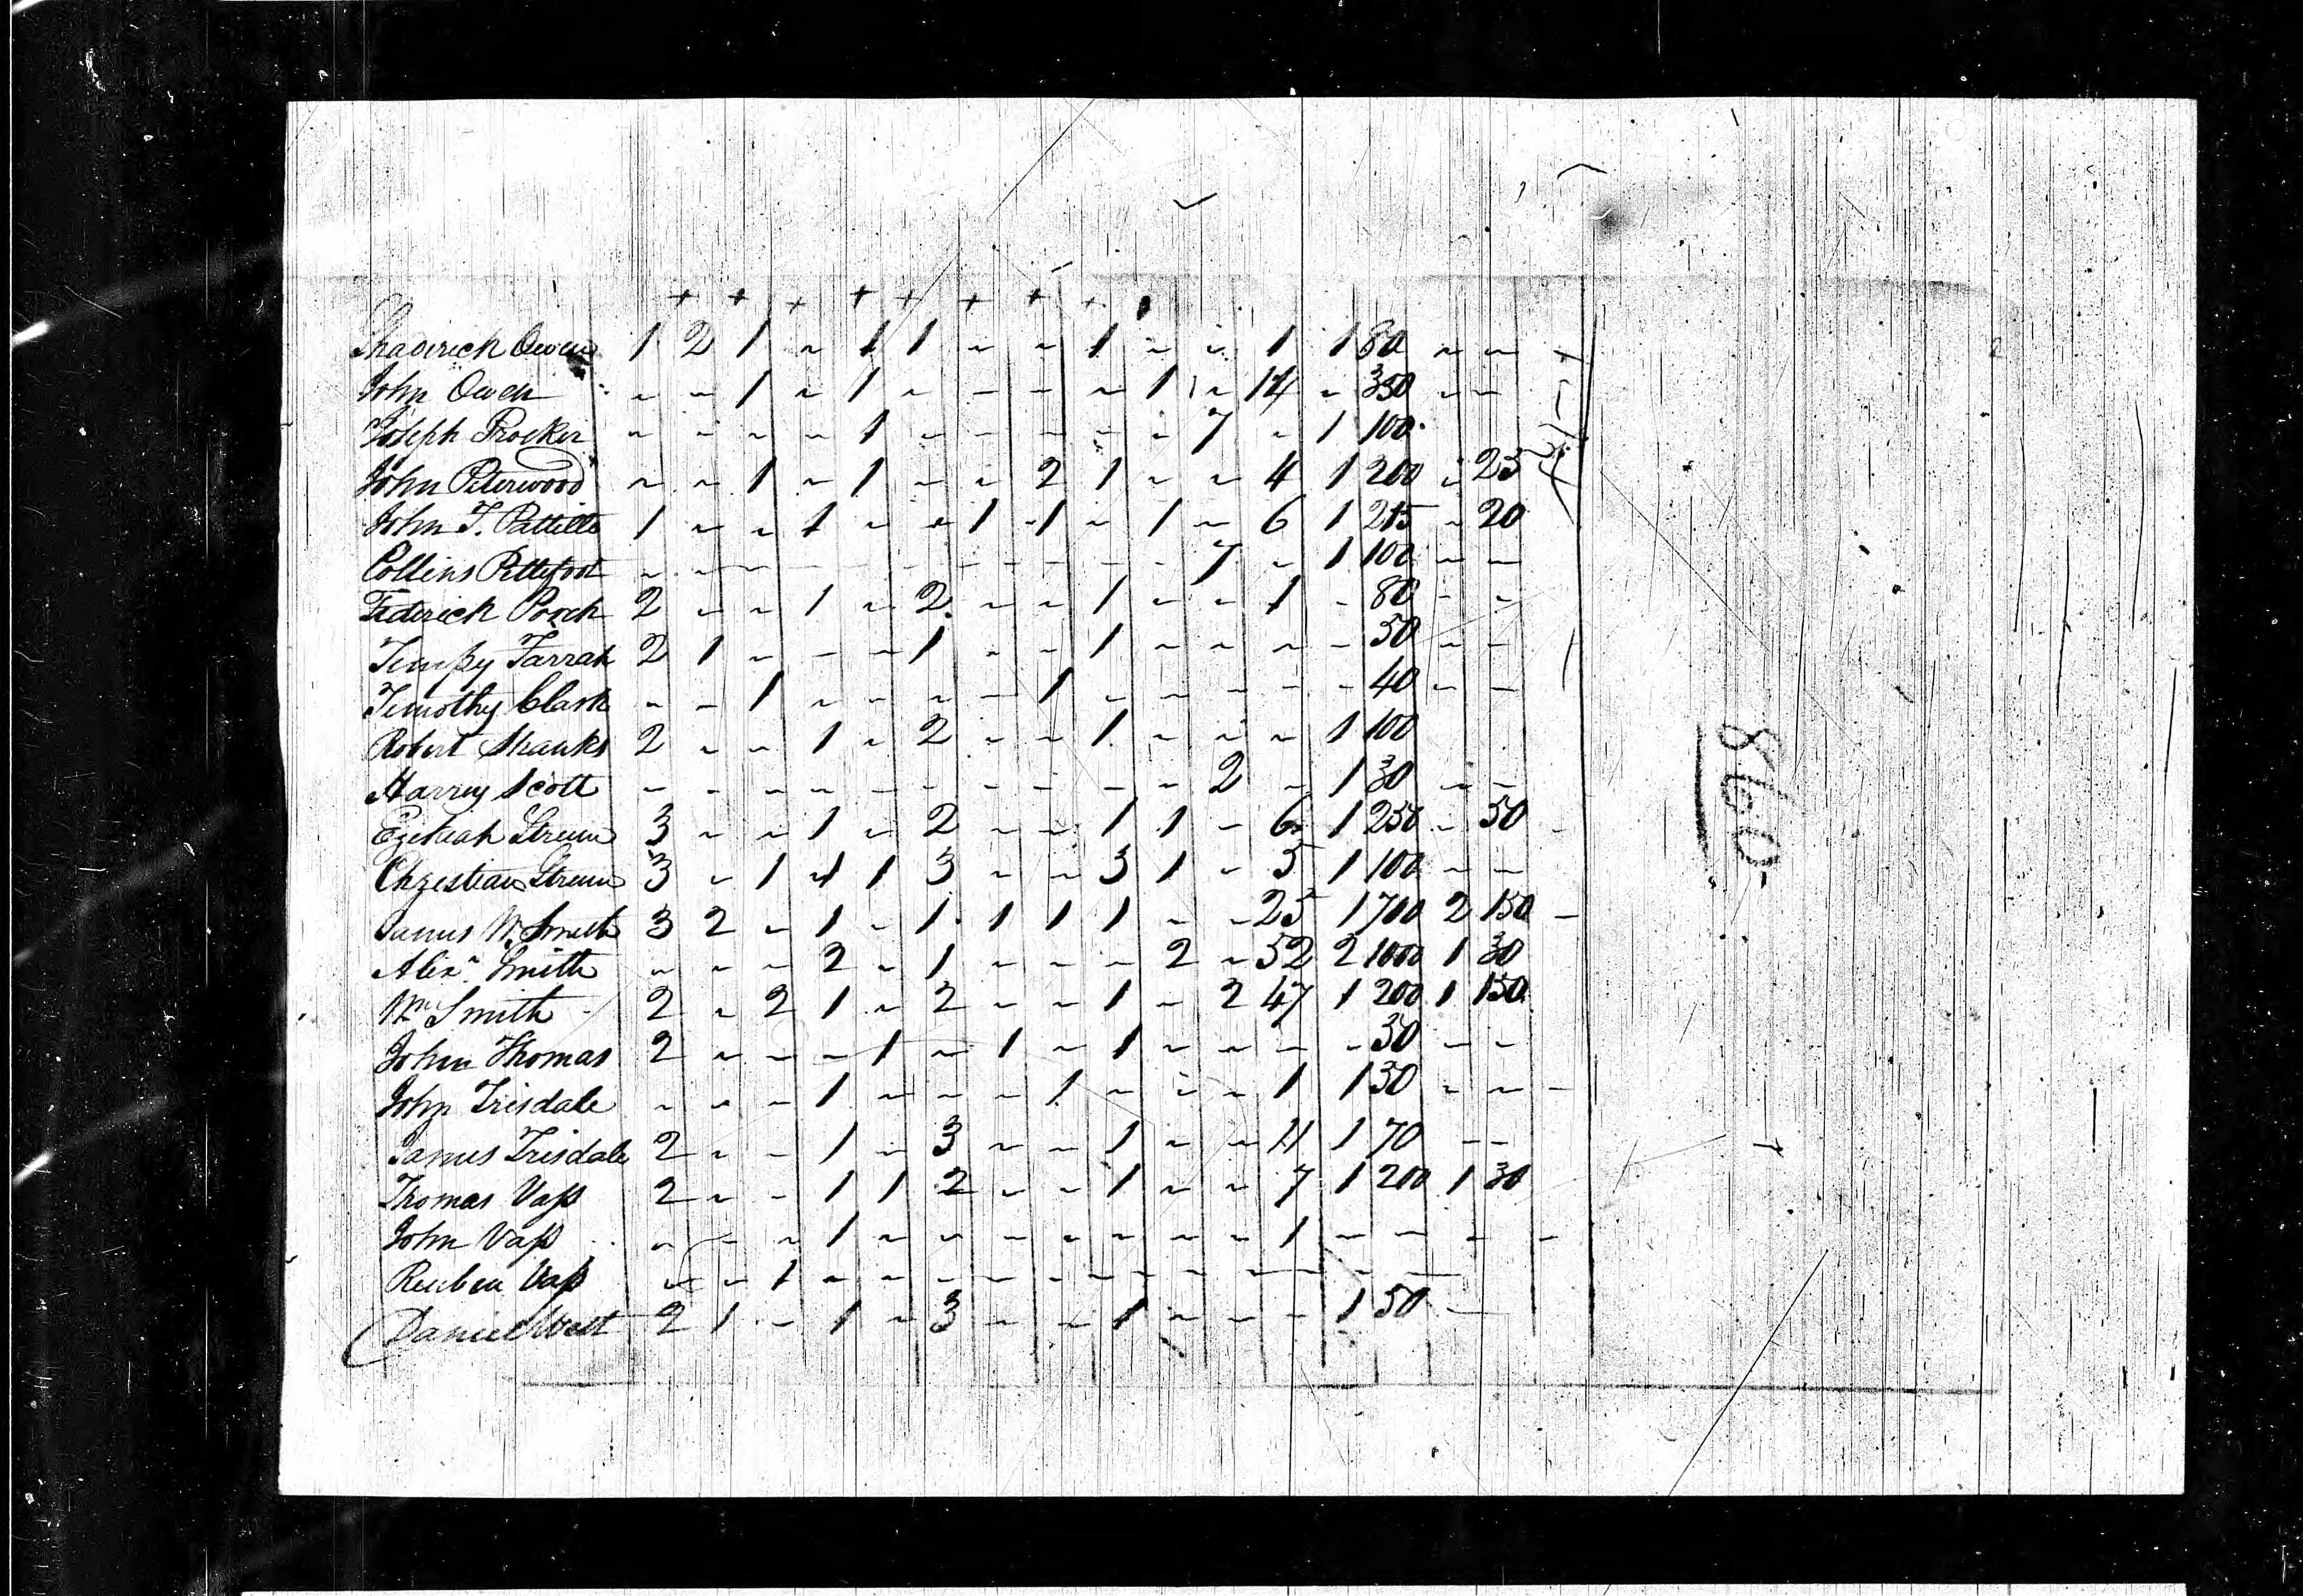 + + + + + + + +
Shadrick Owen 1 2 1 ~ 1 1 ~ ~ 1 ~ ~ 1 1 80 ~ ~
John Owen ~ ~ 1 ~ 1 ~ – – ~ 1 ~ 14 ~ 350 ~ ~
Joseph Procker ~ ~ ~ ~ 1 ~ – – – ~ 7 ~ 1 100
John Peterwood ~ ~ 1 ~ 1 ~ ~ 2 1 ~ ~ 4 1 200 ~ 25
John T. Pattillo 1 ~ ~ 1 ~ ~ 1 1 ~ 1 ~ 6 1 215 ~ 20
Collins Pettifoot ~ ~ ~ – – – – – – ~ 7 ~ 1 100 ~ ~
Federick Poxch 2 ~ ~ 1 ~ 2 ~ ~ 1 ~ ~ 1 ~ 80 ~ ~
Tempy Farrah 2 1 ~ ~ ~ 1 ~ ~ 1 ~ ~ ~ ~ 50 ~ ~
Timothy Clark ~ ~ 1 ~ ~ ~ – 1 ~ ~ ~ ~ ~ 40 ~ ~
Robert Shanks 2 ~ ~ 1 ~ 2 ~ ~ 1 ~ ~ ~ 1 100
Harry Scott ~ ~ ~ ~ ~ ~ ~ ~ ~ ~ 2 ~ 1 30 ~ ~
Ezekiah Strum 3 ~ ~ 1 ~ 2 ~ ~ 1 1 ~ 6 1 250 ~ 50
Chrestian Strum 3 ~ 1 1 1 3 ~ ~ 3 1 ~ 5 1 100 ~ ~
James W. Smith 3 2 ~ 1 ~ 1 1 1 1 ~ ~ 25 1 700 2 150
Alexr. Smith ~ ~ ~ 2 ~ 1 ~ ~ ~ 2 ~ 52 2 1000 1 30
Wm Smith 2 ~ 2 1 ~ 2 ~ ~ 1 ~ 2 47 1 200 1 150
John Thomas 2 ~ ~ ~ 1 ~ 1 ~ 1 ~ ~ ~ ~ 30 ~ ~
John Trisdale ~ ~ ~ 1 ~ ~ ~ 1 ~ ~ ~ 1 1 30 ~ ~
James Trisdale 2 ~ ~ 1 ~ 3 ~ ~ 1 ~ ~ 11 1 70 ~ ~
Thomas Vaſs 2 ~ ~ 1 1 2 ~ ~ 1 ~ ~ 7 1 200 1 30
John Vaſs ~ ~ ~ 1 ~ ~ ~ ~ ~ ~ ~ 1 ~ ~ ~ ~
Reuben Vaſs ~ ~ 1 ~ ~ ~ ~ ~ ~ ~ ~ ~ ~ ~ ~
Daniel West 2 1 ~ 1 ~ 3 ~ ~ 1 ~ ~ ~ 1 50 ~